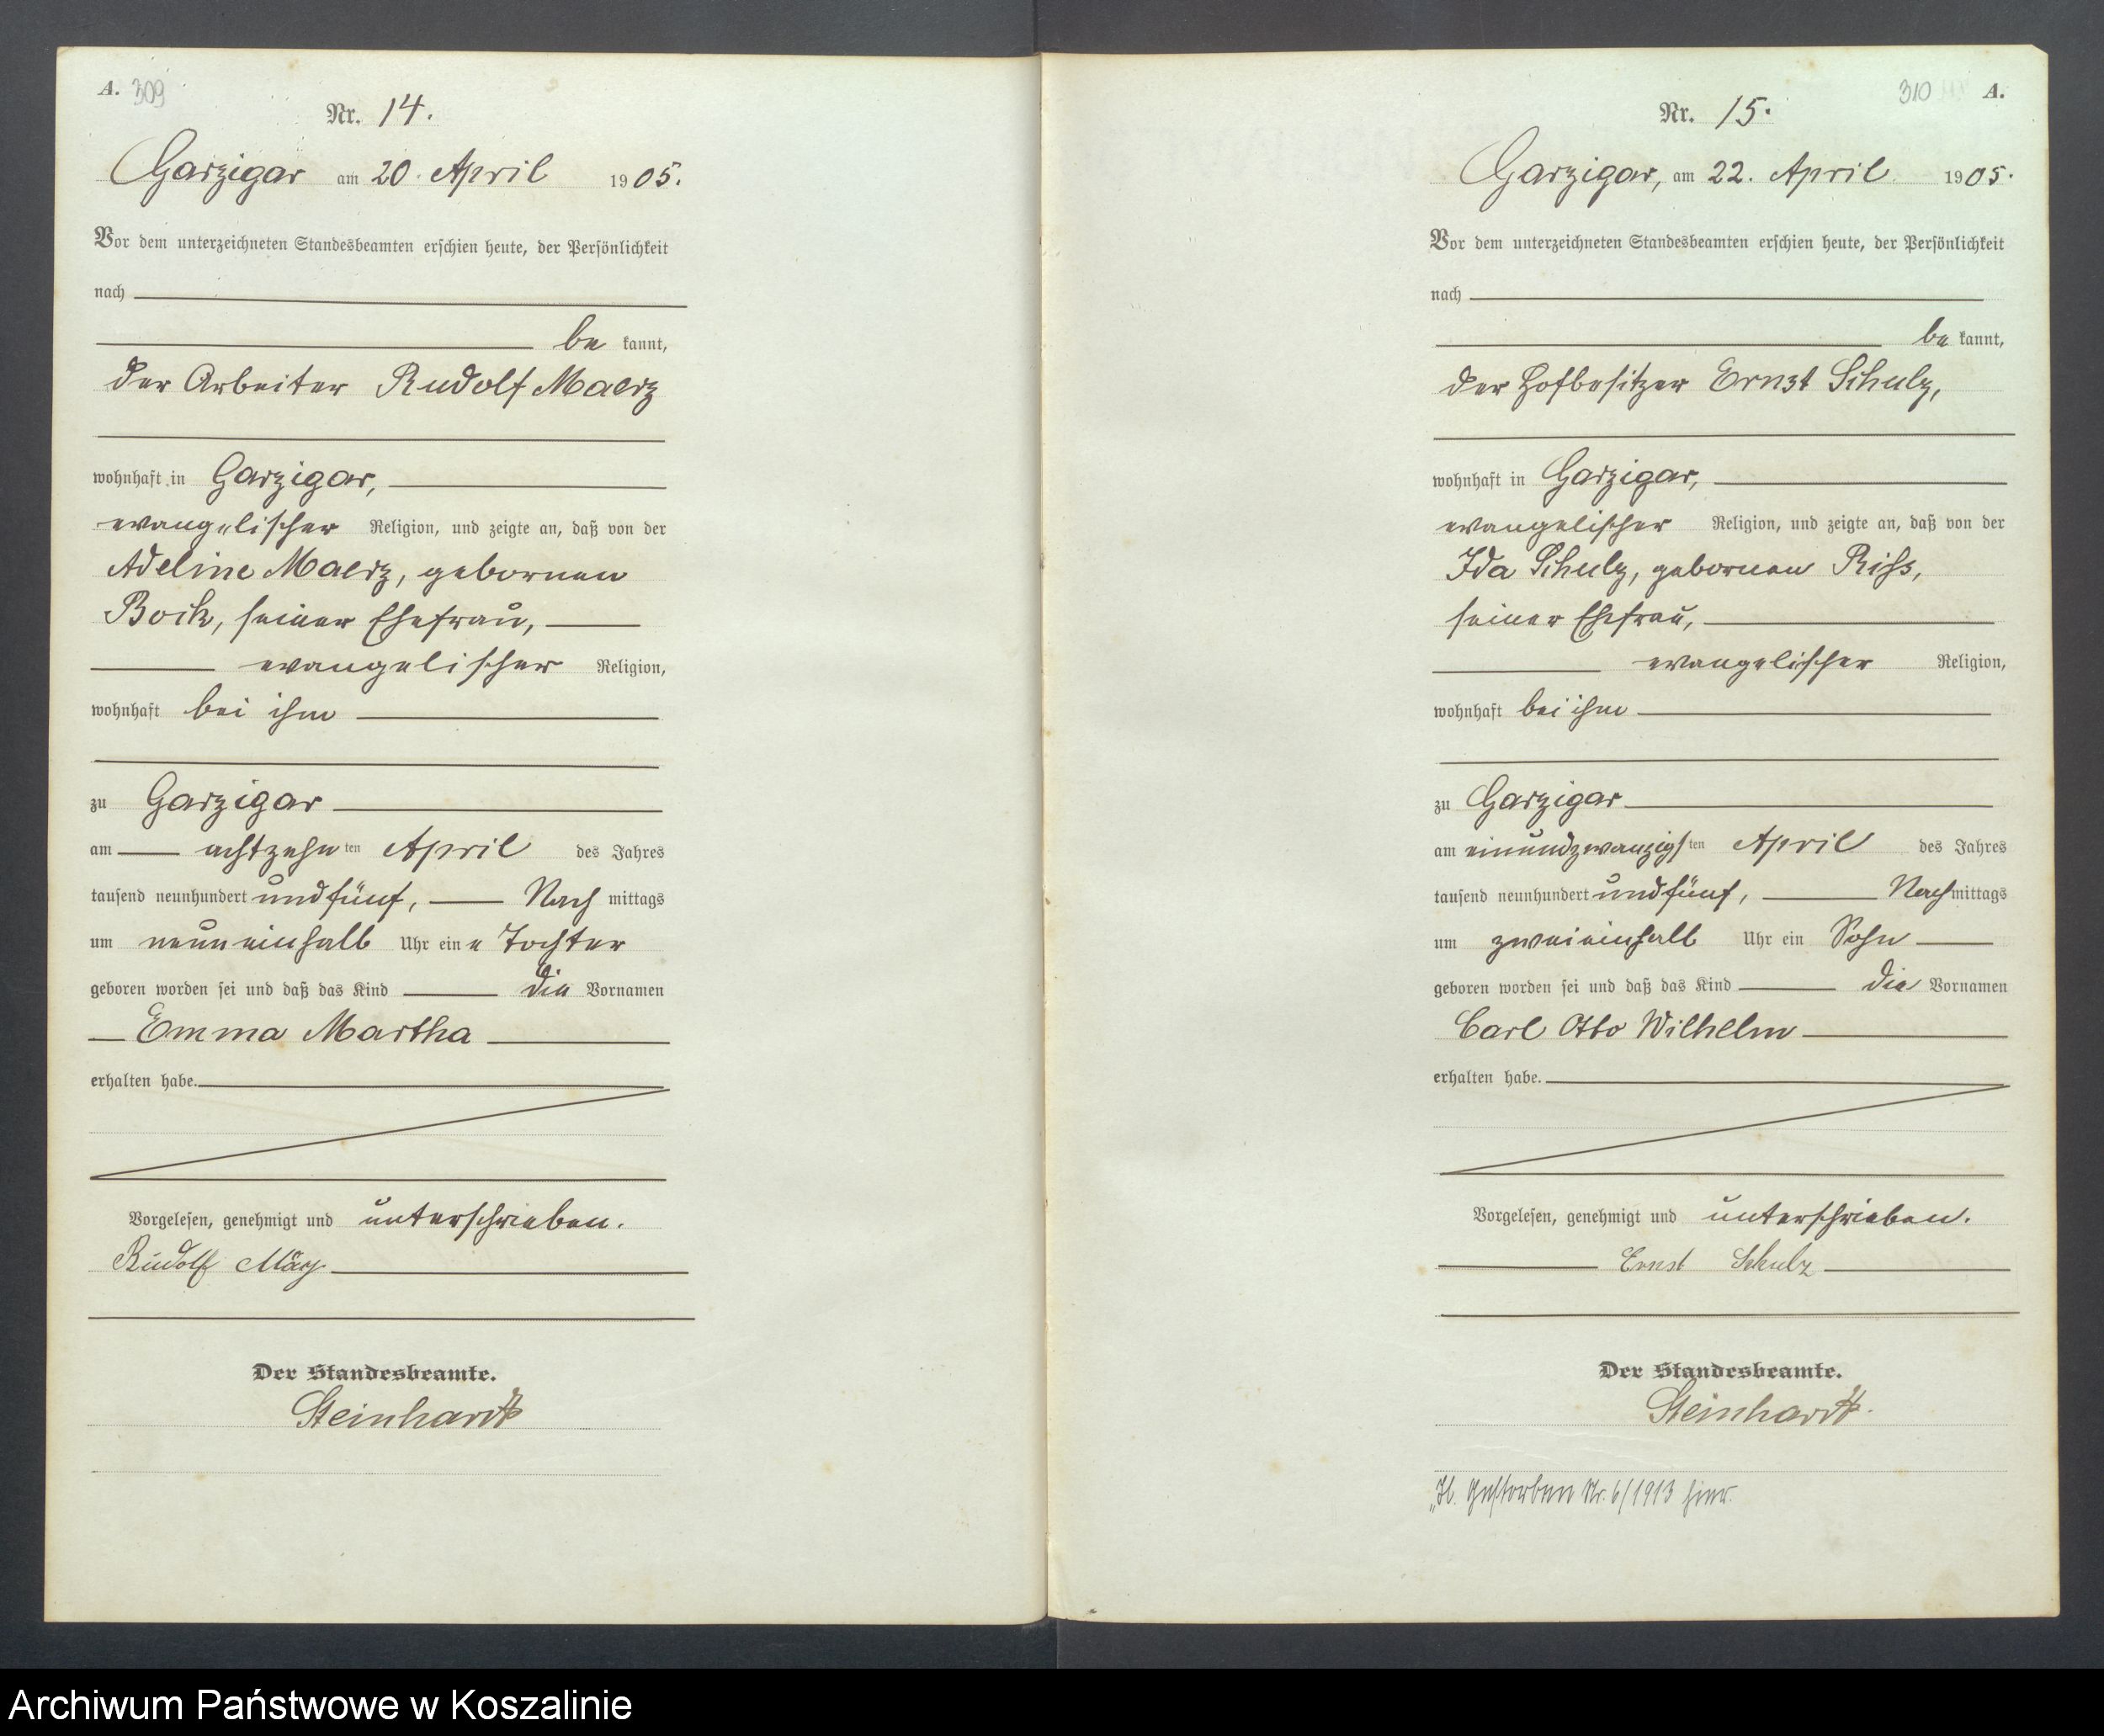 A. 309
Nr. 14.
Garzigar am 20. April 1905.
Vor dem unterzeichneten Standesbeamten erschien heute, der Persönlichkeit
nach
be kannt,
der Arbeiter Rudolf Maerz
wohnhaft in Garzigar,
evangelischer Religion, und zeigte an, daß von der
Adeline Maerz, geborenen
Bock, seiner Ehefrau,
evangelischer Religion,
wohnhaft bei ihm
zu Garzigar
am achtzehn ten April des Jahres
tausend neunhundert und fünf, Nach mittags
um neun einhalb Uhr ein e Tochter
geboren worden sei und daß das Kind die Vornamen
Emma Martha
erhalten habe.
Vorgelesen, genehmigt und unterschrieben.
Rudolf März
Der Standesbeamte.
Steinhardt
310 A.
Nr. 15.
Garzigar, am 22. April 1905.
Vor dem unterzeichneten Standesbeamten erschien heute, der Persönlichkeit
nach
be kannt,
der Hofbesitzer Ernst Schulz,
wohnhaft in Garzigar,
evangelischer Religion, und zeigte an, daß von der
Ida Schulz, geborenen Riss,
seiner Ehefrau,
evangelischer Religion,
wohnhaft bei ihm
zu Garzigar
am einundzwanzigs ten April des Jahres
tausend neunhundert und fünf, Nach mittags
um zwei einhalb Uhr ein Sohn
geboren worden sei und daß das Kind die Vornamen
Carl Otto Wilhelm
erhalten habe.
Vorgelesen, genehmigt und unterschrieben.
Ernst Schulz
Der Standesbeamte.
Steinhardt.
gestorben Nr. 6/1913 hier.
Archiwum Państwowe w Koszalinie